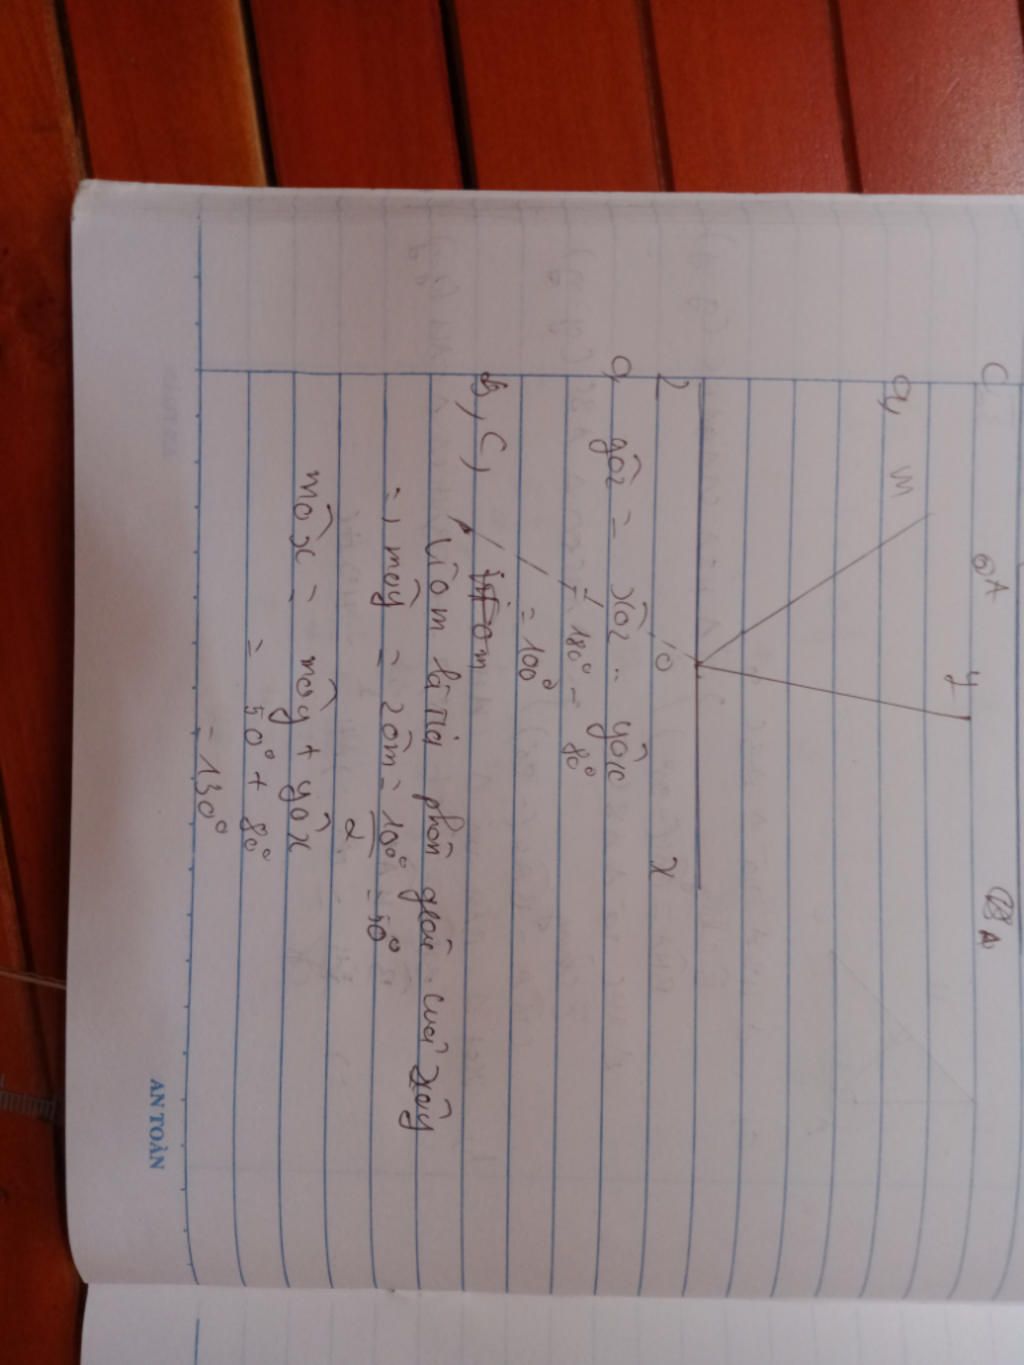 C,
A
A
a, m
y
z
O
x
a, yôz = xôz - yôx
= 180° - 80°
= 100°
b, c,
Vì om là tia phân giác của zôy
=, môy = zôm = 100°/2 = 50°
môx = môy + yôx
= 50° + 80°
= 130°
AN TOÀN